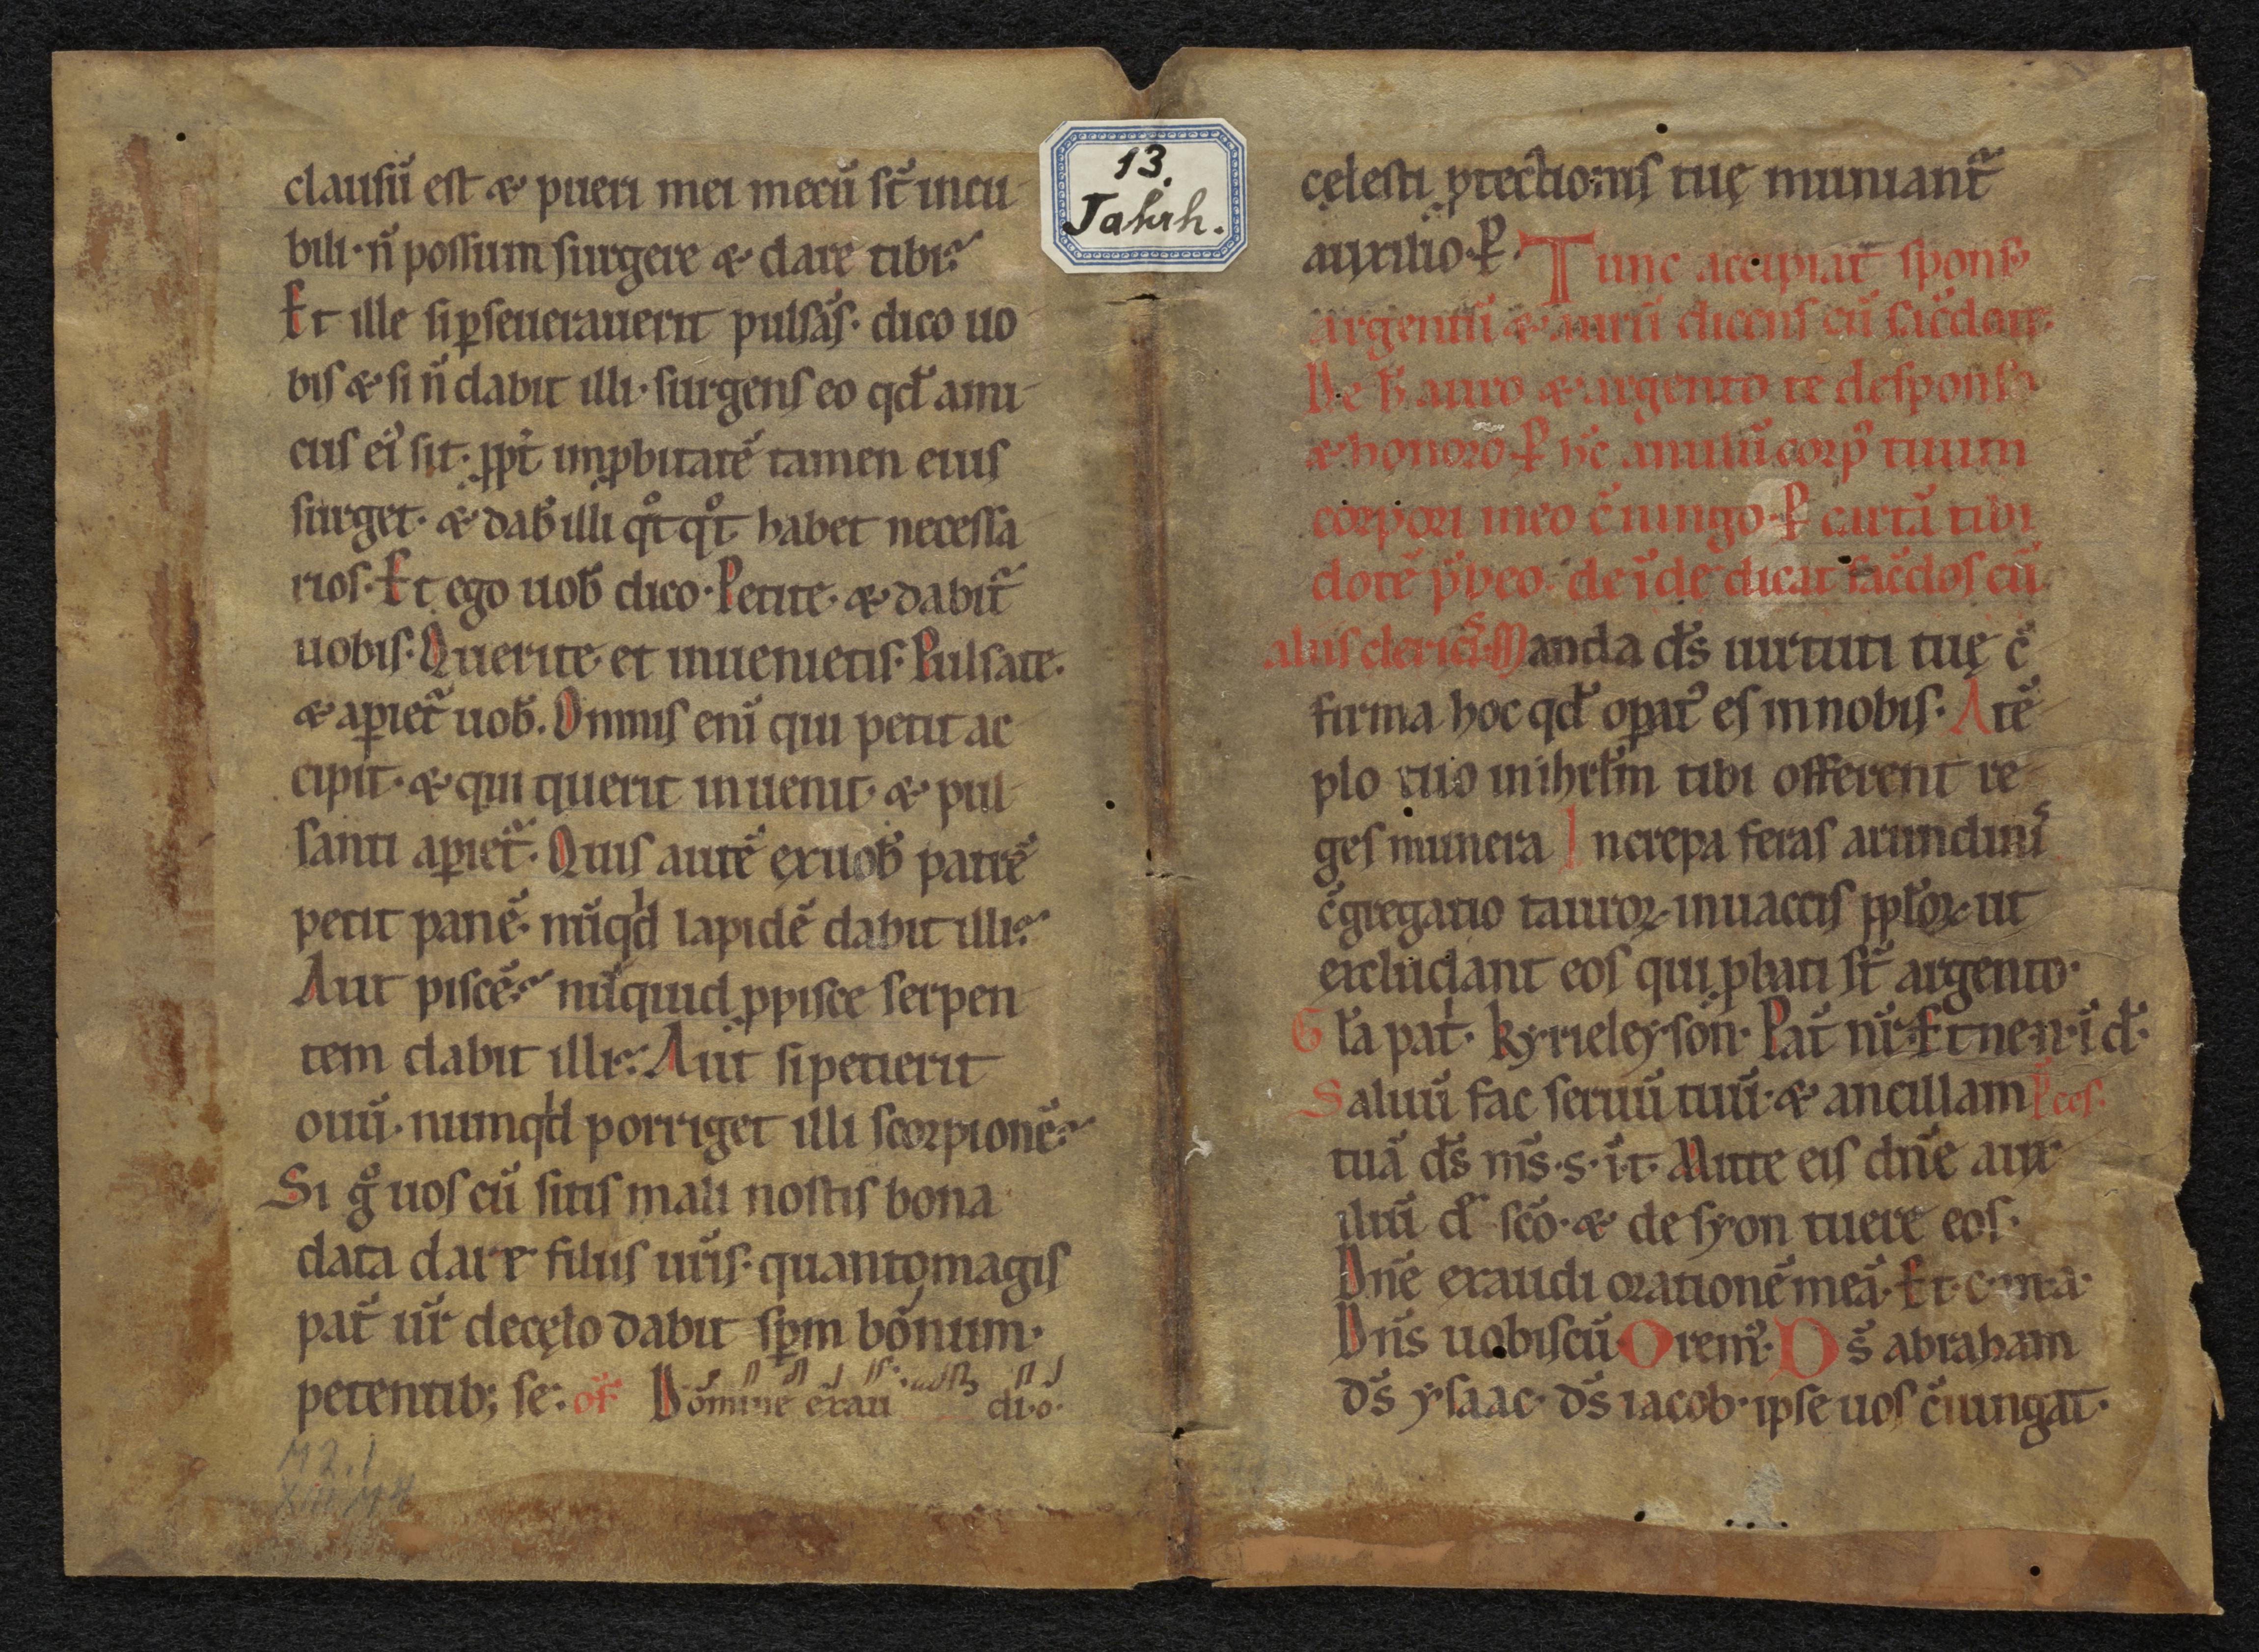 clausū est & pueri mei mecū st̄ incu
bili·n̄ possum surgere & dare tibi?
Et ille si ꝑseuerauerit pulsās· dico uo
bis & si n̄ dabit illi· surgens eo qd̄ ami
cus ei᾽ sit· ꝓpt̄ imꝓbitatē tamen eius
surget· & dab̄ illi qͦtqͦt habet necessa
rios· Et ego uob̄ dico· Petite· & dabit᷑
uobis· Querite· et inuenietis· Pulsate·
& aꝑiet᷑ uob̄. Omnis enī qui petit ac
cipit· & qui querit inuenit· & pul
santi aꝑiet᷑· Quis autē ex uob̄ patrē
petit panē· nūqd lapidē dabit illi?
Aut piscē? nūquid ꝓ pisce serpen
tem dabit illi? Aut si petierit
ouū· numqd porriget illi scorpionē?
Si gͦ uos cū sitis mali nostis bona
data dare filiis ur̄is· quanto magis
pat̄ ur̄ de cęlo dabit sp̄m bonum·
petentib; se· of̄ Domine exau di·o·
13.
Jahrh.
cęlesti ꝓtectionis tuę muniant᷑
auxilio· ꝑ· Tunc accipiat spons᾽
argentū & aurū dicens cū sac̄dote
De h̄ auro & argento te desponso
& honoro ꝑ hc̄ anulū corp᾽ tuum
corpori meo c̄iungo ꝑ cartā tibi
dotē p̄beo· deīde dicat sac̄dos cū
aliis clericis Manda ds̄ uirtuti tuę c̄
firma hoc qd̄ opat᾽ es in nobis· A tē
plo tuo in ihrl̄m tibi offerent re
ges munera Increpa feras arundinis
c̄gregatio tauroꝝ in uaccis ppl̄oꝝ ut
excludant eos qui ꝓbati st̄ argento·
Gl̄a pat̄· kyrieleyson· Pat̄ nr̄· Et ne·n·ī d̄·
Saluū fac seruū tuū· & ancillam p̄ces·
tuā ds̄ ms̄·s·ī·t· Mitte eis dn̄e aux
iliū d̄ sc̄o· & de syon tuere eos·
Dn̄e exaudi orationē meā· Et·c·m·a·
Dn̄s uobiscū· Orem᾽· Ds̄ abraham
ds̄ ysaac· ds̄ iacob· ipse uos c̄iungat·